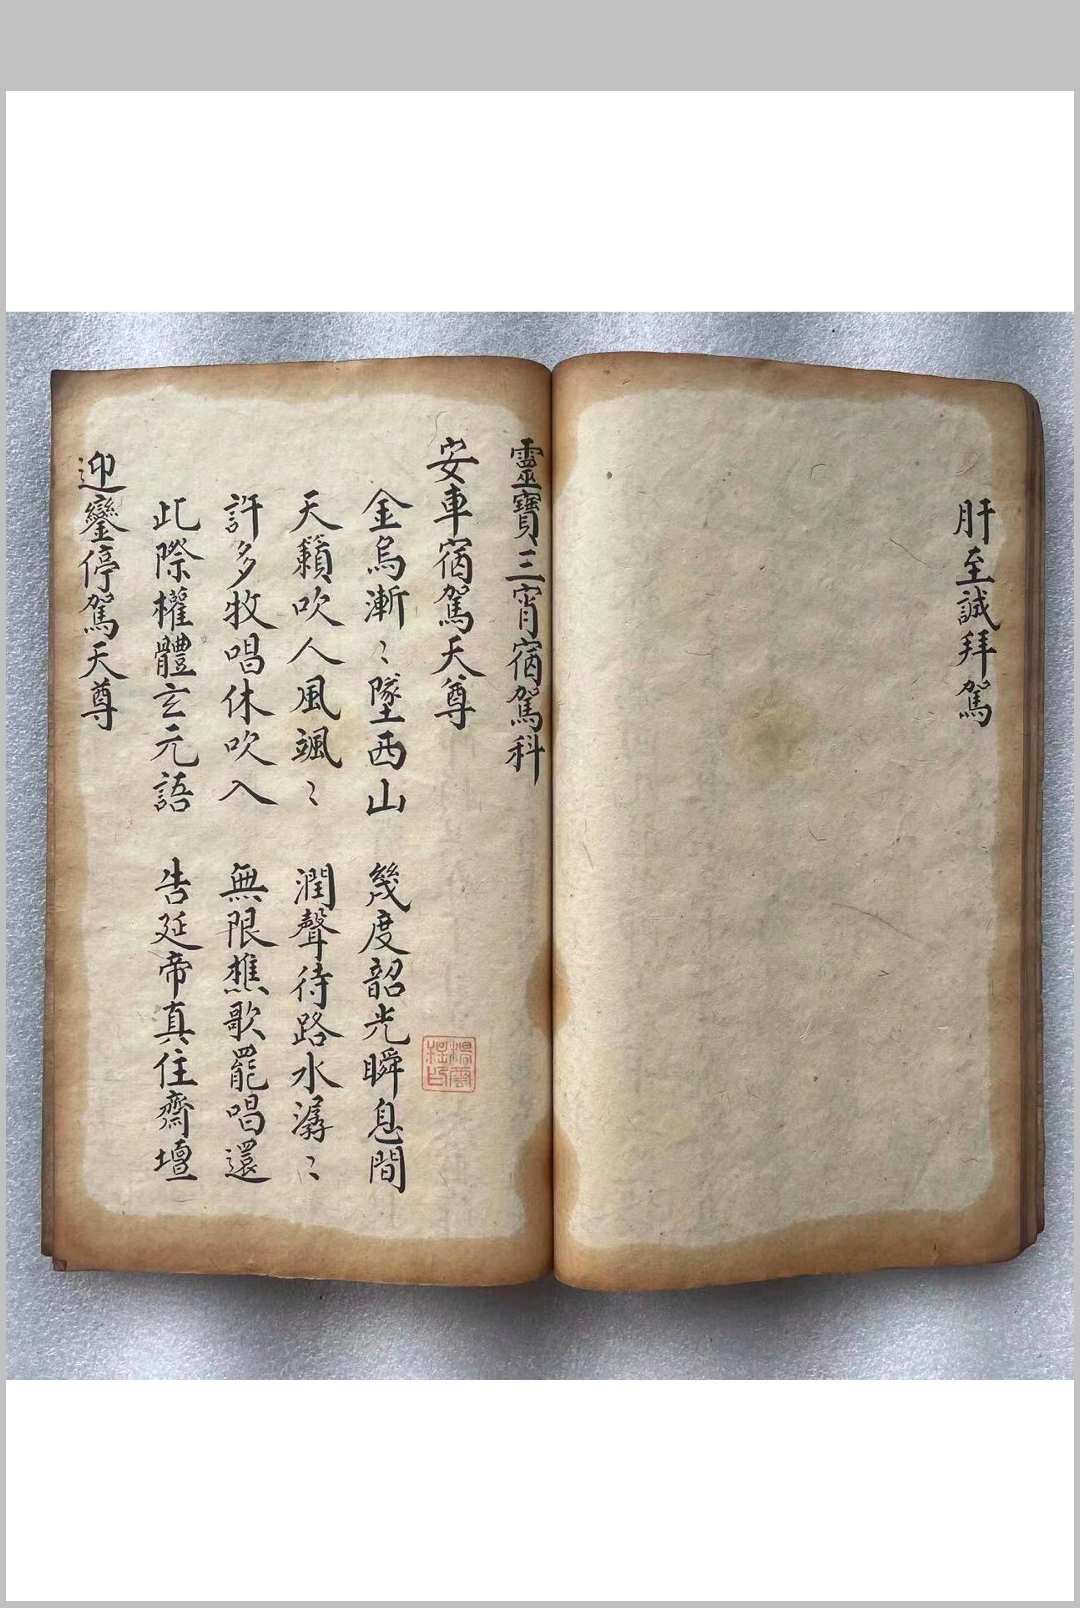 肝至誠拜駕
靈寶三宵宿駕科
安車宿駕天尊
金烏漸〻墜西山　幾度韶光瞬息間
天籟吹人風颯〻　潤聲待路水潺〻
許多牧唱休吹入　無限樵歌罷唱還
此際權體玄元語　告延帝真住齋壇
迎鑾停駕天尊